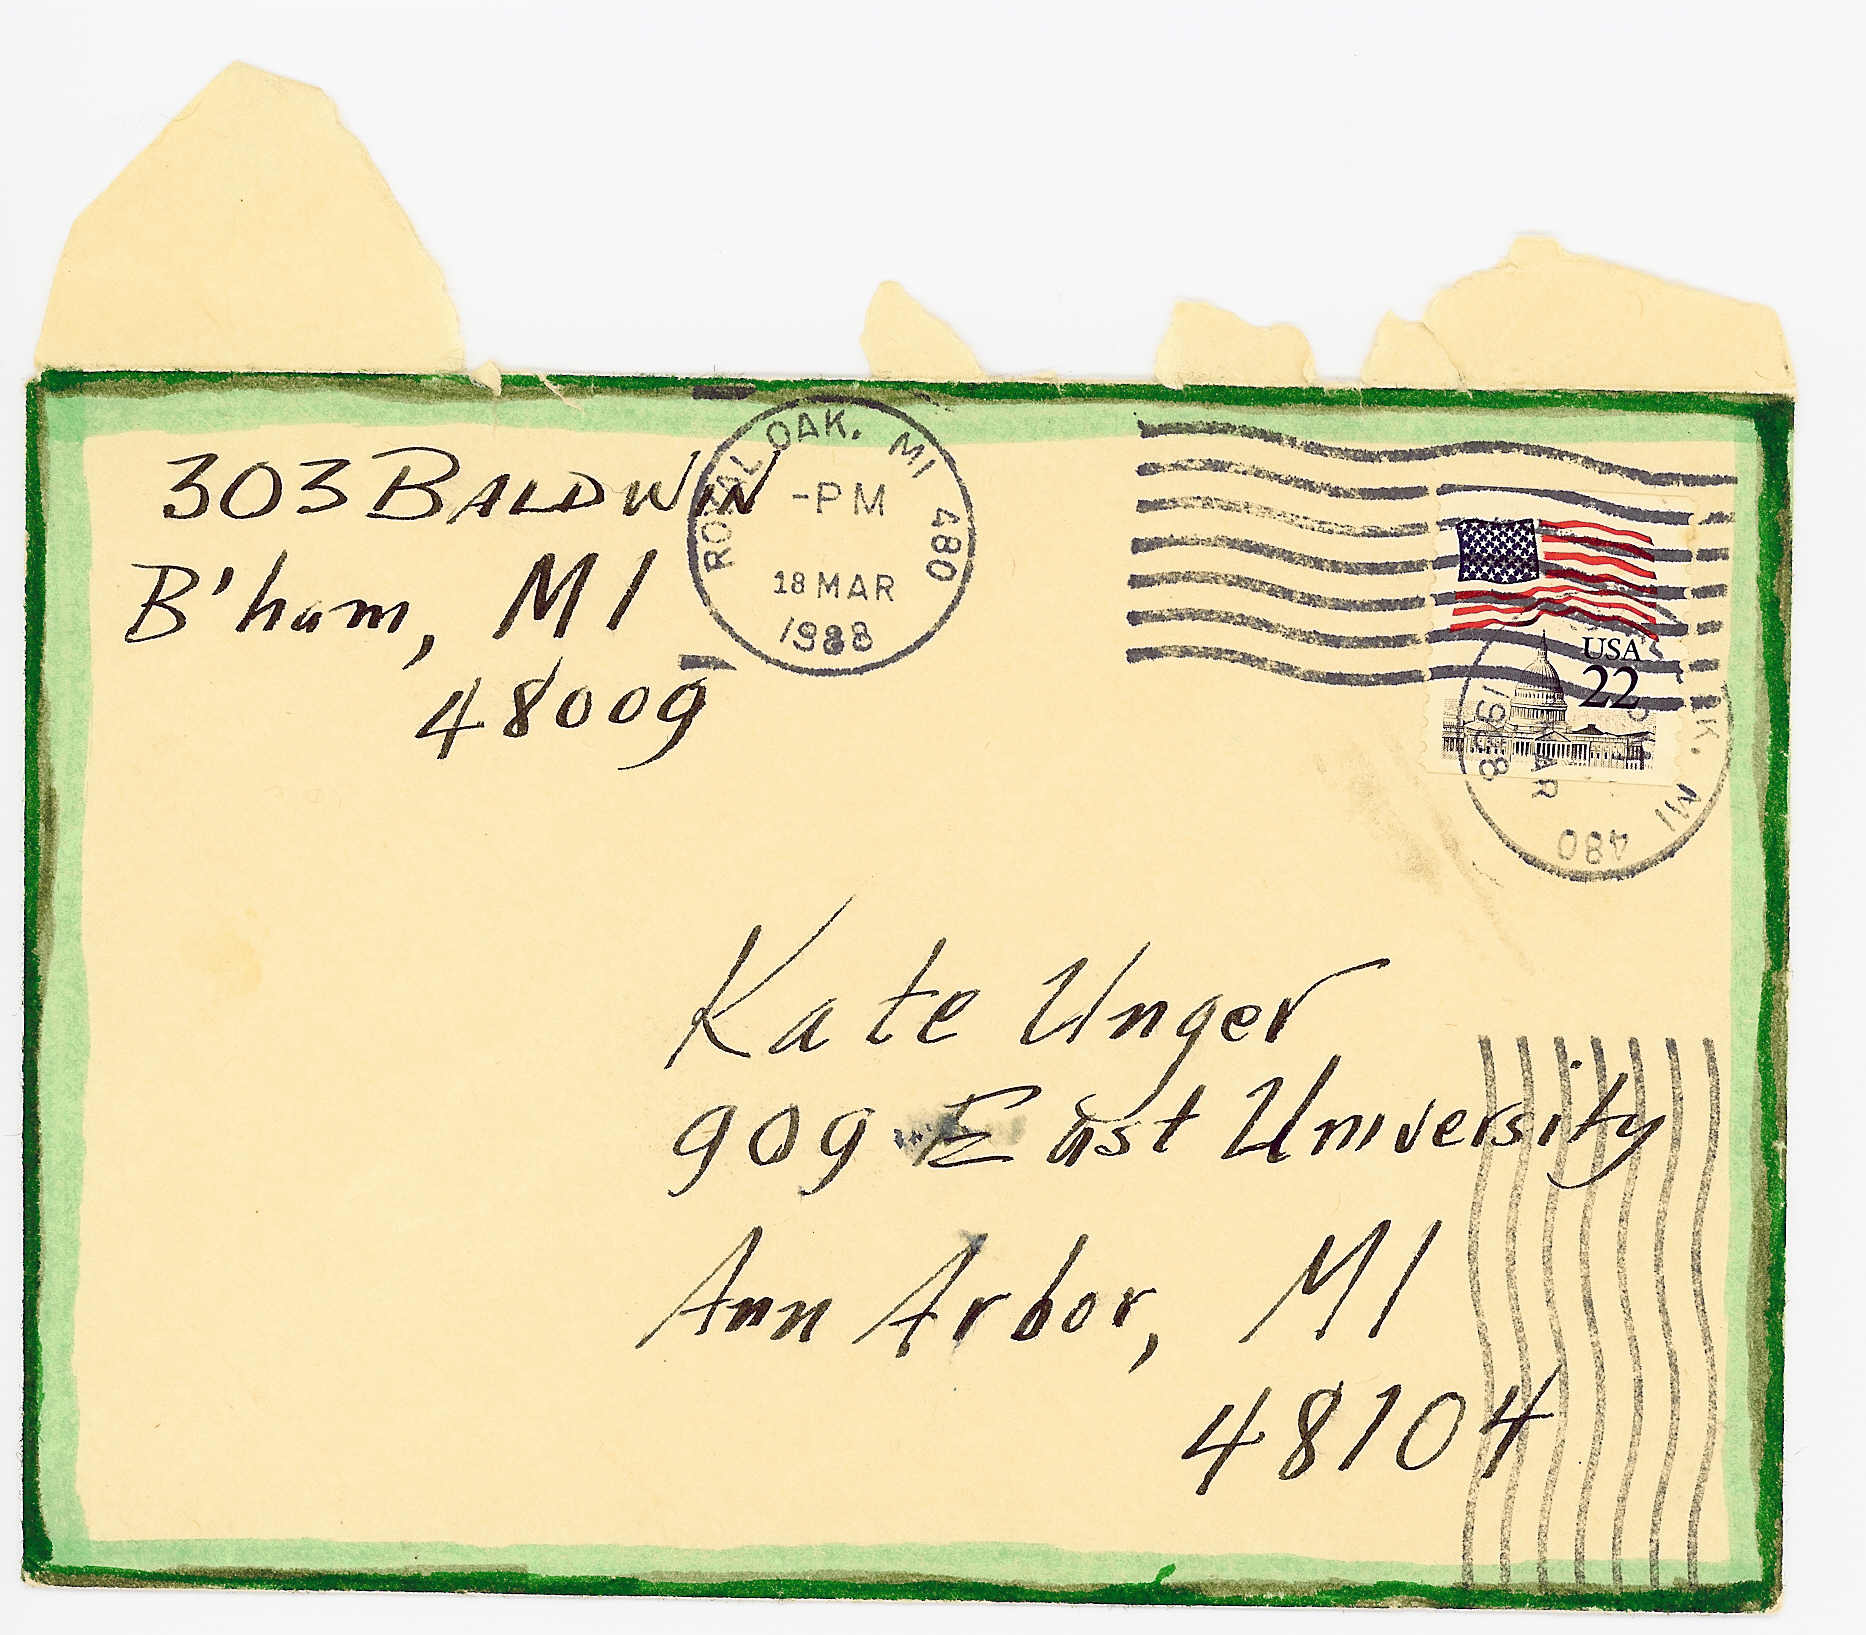 303 BALDWIN
B'ham, MI
48009
ROYAL OAK, MI 480
-PM
18 MAR
1988
USA
22
1988
MAR
OAK, MI
480
Kate Unger
909 East University
Ann Arbor, MI
48104